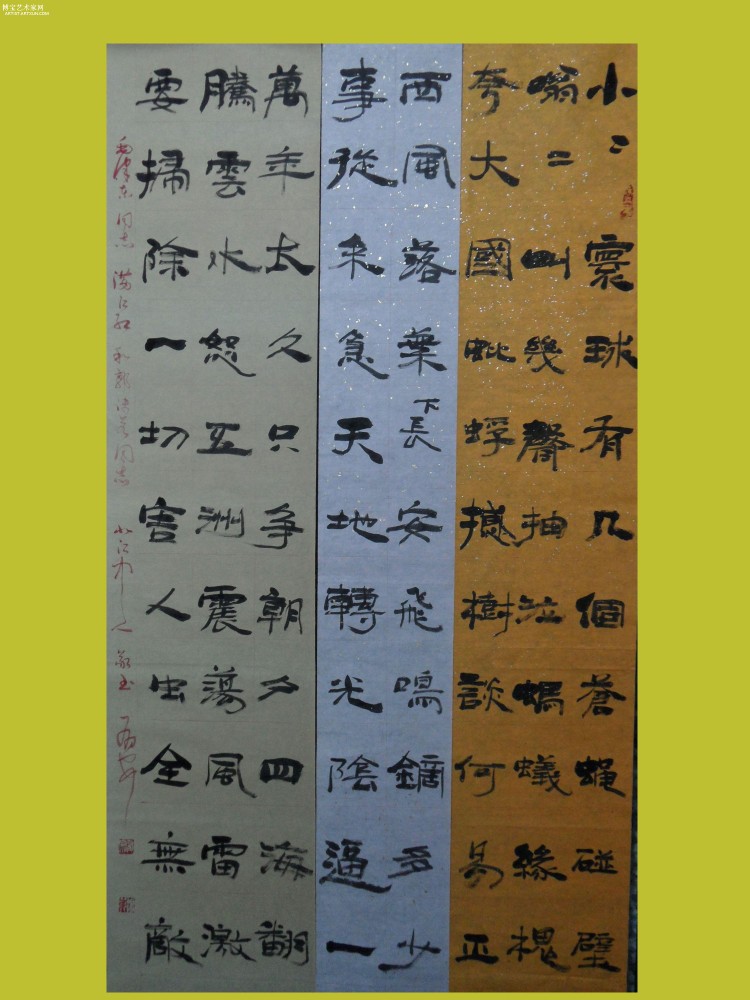 博宝艺术家网
ARTIST.ARTXUN.COM
小二寰球有几個蒼蠅碰壁
嗡二叫幾聲抽泣螞蟻緣槐
夸大國蚍蜉撼樹談何易正
西風落葉下長安飛鳴鏑多少
事從来急天地轉光陰逼一
萬年太久只争朝夕四海翻
騰雲水恕五洲震蕩風雷激
要掃除一切害人虫全無敵
毛澤东同志 滿江紅 和郭沫若同志